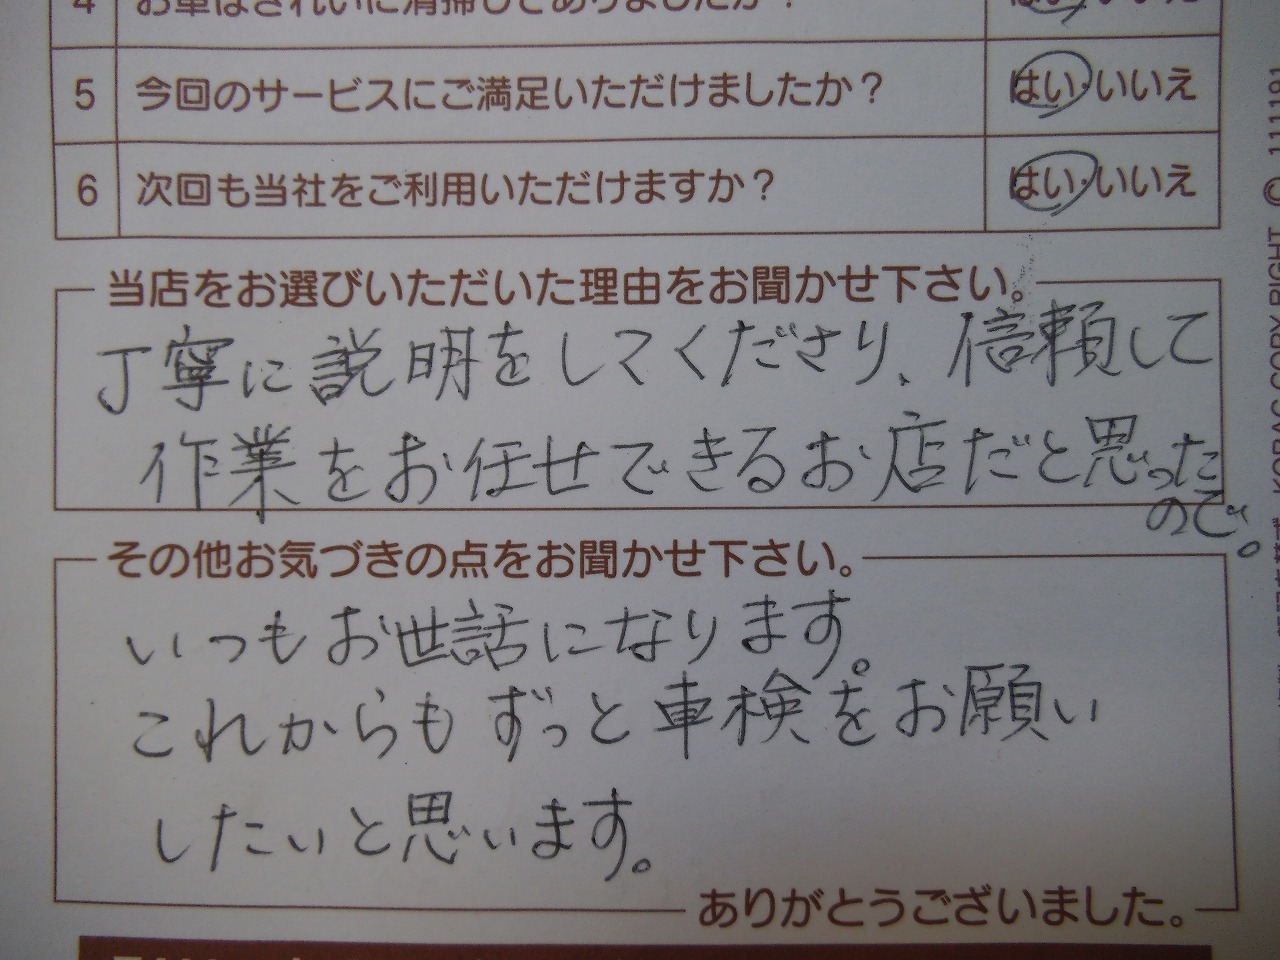 4 お車はきれいに清掃してありましたか? はい・いいえ
5 今回のサービスにご満足いただけましたか? はい・いいえ
6 次回も当社をご利用いただけますか? はい・いいえ
当店をお選びいただいた理由をお聞かせ下さい。
丁寧に説明をしてくださり、信頼して
作業をお任せできるお店だと思った
ので。
その他お気づきの点をお聞かせ下さい。
いつもお世話になります。
これからもずっと車検をお願い
したいと思います。
ありがとうございました。